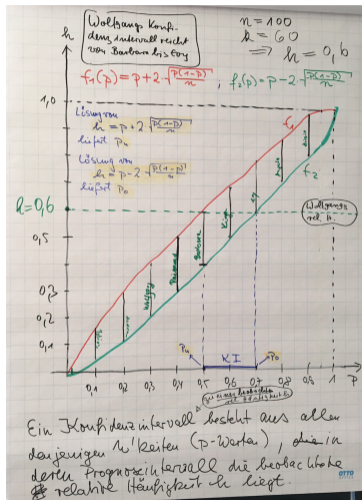 Wolfgangs Konfi-
denzintervall reicht
von Barbara bis Eoy
n = 100
k = 60
⇒ h = 0,6
h
f₁(p) = p + 2·√(p(1-p)/n) ; f₂(p) = p - 2·√(p(1-p)/n)
1,0
Lösung von
h = p + 2·√(p(1-p)/n)
liefert pᵤ
Lösung von
h = p - 2·√(p(1-p)/n)
liefert pₒ
f₁
f₂
h = 0,6
Wolfgangs
rel. h.
0,5
Wolfgang
Barbara
0,3
0,2
0,1
pᵤ
KI
pₒ
0,1 0,2 0,3 0,4 0,5 0,6 0,7 0,8 0,9 1 p
zu einer beobachteten
rel. Häufigkeit h
Ein Konfidenzintervall besteht aus allen
denjenigen W'keiten (p-Werten), die in
deren Prognoseintervall die beobachtete
relative Häufigkeit h liegt.
OTTO